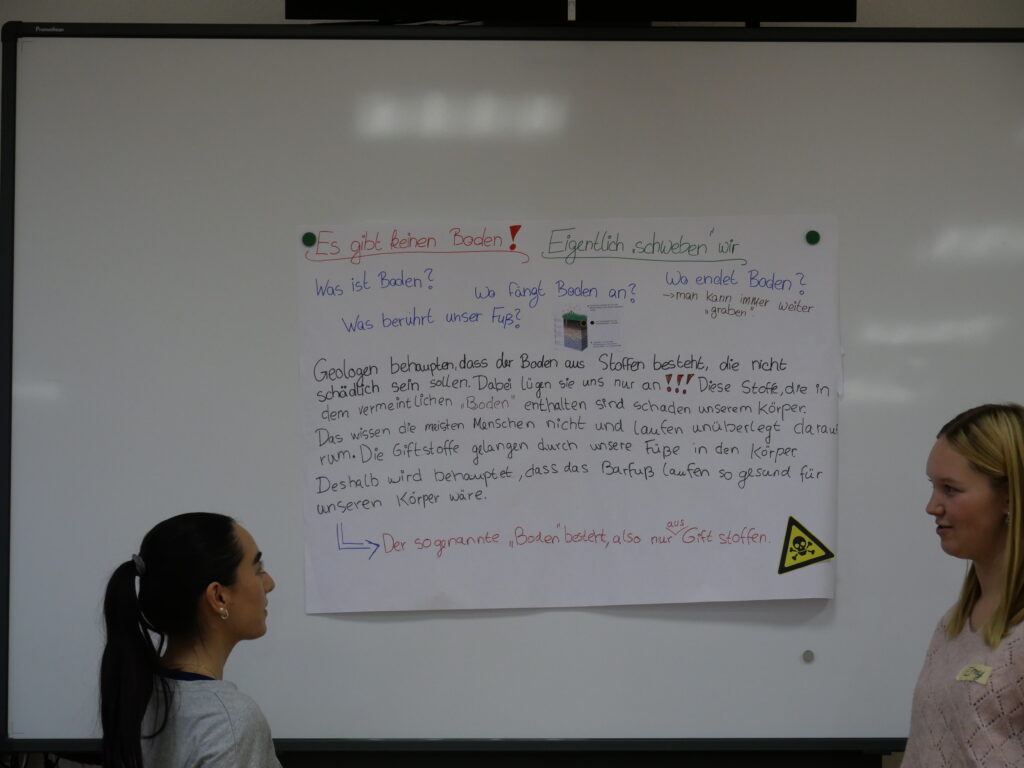 Promethean
Es gibt keinen Boden! Eigentlich „schweben“ wir
Was ist Boden? Wo fängt Boden an? Wo endet Boden?
→man kann immer weiter
„graben“
Was berührt unser Fuß?
Geologen behaupten, dass der Boden aus Stoffen besteht, die nicht
schädlich sein sollen. Dabei lügen sie uns nur an!!! Diese Stoffe, die in
dem vermeintlichen „Boden“ enthalten sind schaden unserem Körper.
Das wissen die meisten Menschen nicht und laufen unüberlegt darauf
rum. Die Giftstoffe gelangen durch unsere Füße in den Körper
Deshalb wird behauptet, dass das Barfuß laufen so gesund für
unseren Körper wäre.
Der sogenannte „Boden“ besteht, also nur aus Gift stoffen.